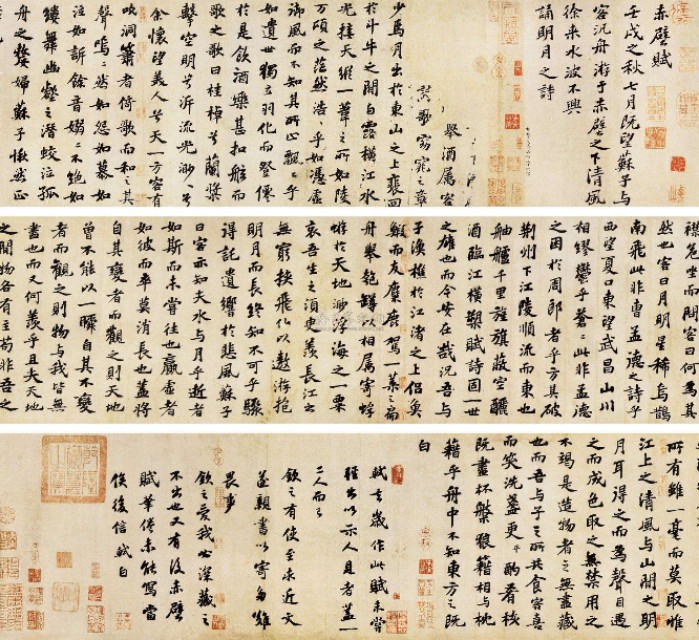 赤壁賦
壬戌之秋七月既望蘇子與
客泛舟游于赤壁之下清風
徐來水波不興
誦明月之詩
舉酒屬客
歌窈窕之章
少焉月出於東山之上裵回
於斗牛之間白露橫江水
光接天縱一葦之所如陵
萬頃之茫然浩〻乎如馮虛
御風而不知其所止飄〻乎
如遺世獨立羽化而登僊
於是飲酒樂甚扣舷而
歌之歌曰桂棹兮蘭槳
擊空明兮泝流光渺〻兮
余懷望美人兮天一方客有
吹洞簫者倚歌而和之其
聲嗚〻然如怨如慕如
泣如訴餘音嫋〻不絕如
縷舞幽壑之潛蛟泣孤
舟之嫠婦蘇子愀然正
襟危坐而問客曰何為其
然也客曰月明星稀烏鵲
南飛此非曹孟德之詩乎
西望夏口東望武昌山川
相繆鬱乎蒼〻此非孟德
之困於周郎者乎方其破
荊州下江陵順流而東也
舳艫千里旌旗蔽空釃
酒臨江橫槊賦詩固一世
之雄也而今安在哉況吾與
子漁樵於江渚之上侶魚
鰕而友麋鹿駕一葉之扁
舟舉匏罇以相屬寄蜉
蝣於天地渺浮海之一粟
哀吾生之須臾羨長江之
無窮挾飛仙以遨遊抱
明月而長終知不可乎驟
得託遺響於悲風蘇子
曰客亦知夫水與月乎逝者
如斯而未嘗往也贏虛者
如彼而卒莫消長也蓋將
自其變者而觀之則天地
曾不能以一瞬自其不變
者而觀之則物與我皆無
盡也而又何羨乎且夫天地
之間物各有主苟非吾之
所有雖一毫而莫取惟
江上之清風與山間之明
月耳得之而為聲目遇
之而成色取之無禁用之
不竭是造物者之無盡藏
也而吾與子之所共食客喜
而笑洗盞更酌肴核
既盡杯盤狼籍相與枕
藉乎舟中不知東方之既
白
軾去歲作此賦未嘗
輕出以示人見者蓋一
二人而已
欽之有使至求近文
遂親書以寄多難
畏事
欽之愛我必深藏之
不出也又有後赤壁
賦筆倦未能寫當
俟後信軾白